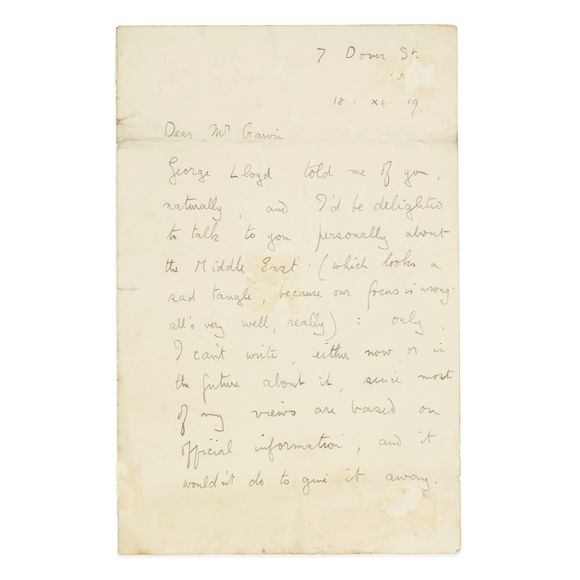 7 Dover St.
18. XI. 19.
Dear Mr Garvin
George Lloyd told me of you,
naturally, and I'd be delighted
to talk to you personally about
the Middle East: (which looks a
sad tangle, because our focus is wrong:
all's very well, really): only,
I can't write, either now or in
the future about it, since most
of my views are based on
official information, and it
wouldn't do to give it away.